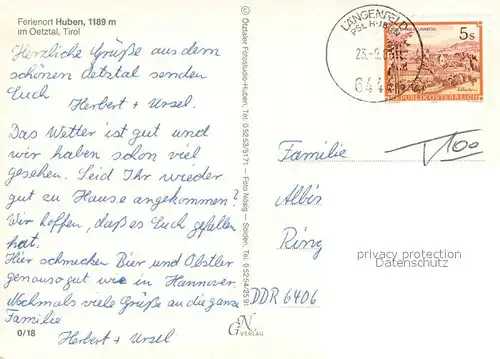 Ferienort Huben, 1189 m
im Oetztal, Tirol
Herzliche Grüße aus dem
schönen Oetztal senden
Euch
Herbert + Ursel.
Das Wetter ist gut und
wir haben schon viel
gesehen. Seid Ihr wieder
gut zu Hause angekommen?
Wir hoffen, daß es Euch gefallen
hat.
Hier schmecken Bier und Obstler
genauso gut wie in Hannover.
Nochmals viele Grüße an die ganze
Familie
Herbert + Ursel
0/18
© Oetztaler Fotostudio-Huben, Tel. 0 52 53/5171 — Foto Nösig — Sölden, Tel. 0 52 54/25 91
GN
VERLAG
LÄNGENFELD
23.-9.
644
5s
REPUBLIK ÖSTERREICH
Familie
Albin
Ring
DDR 6406
privacy protection
Datenschutz